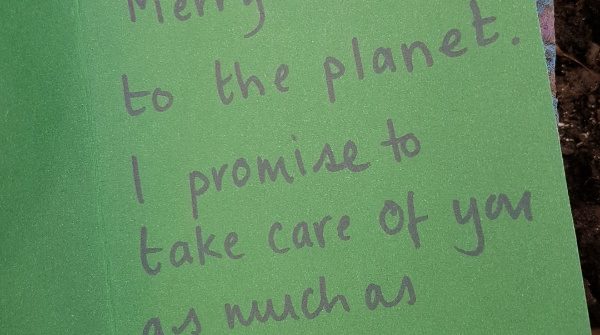 Merry
to the planet.
I promise to
take care of you
as much as